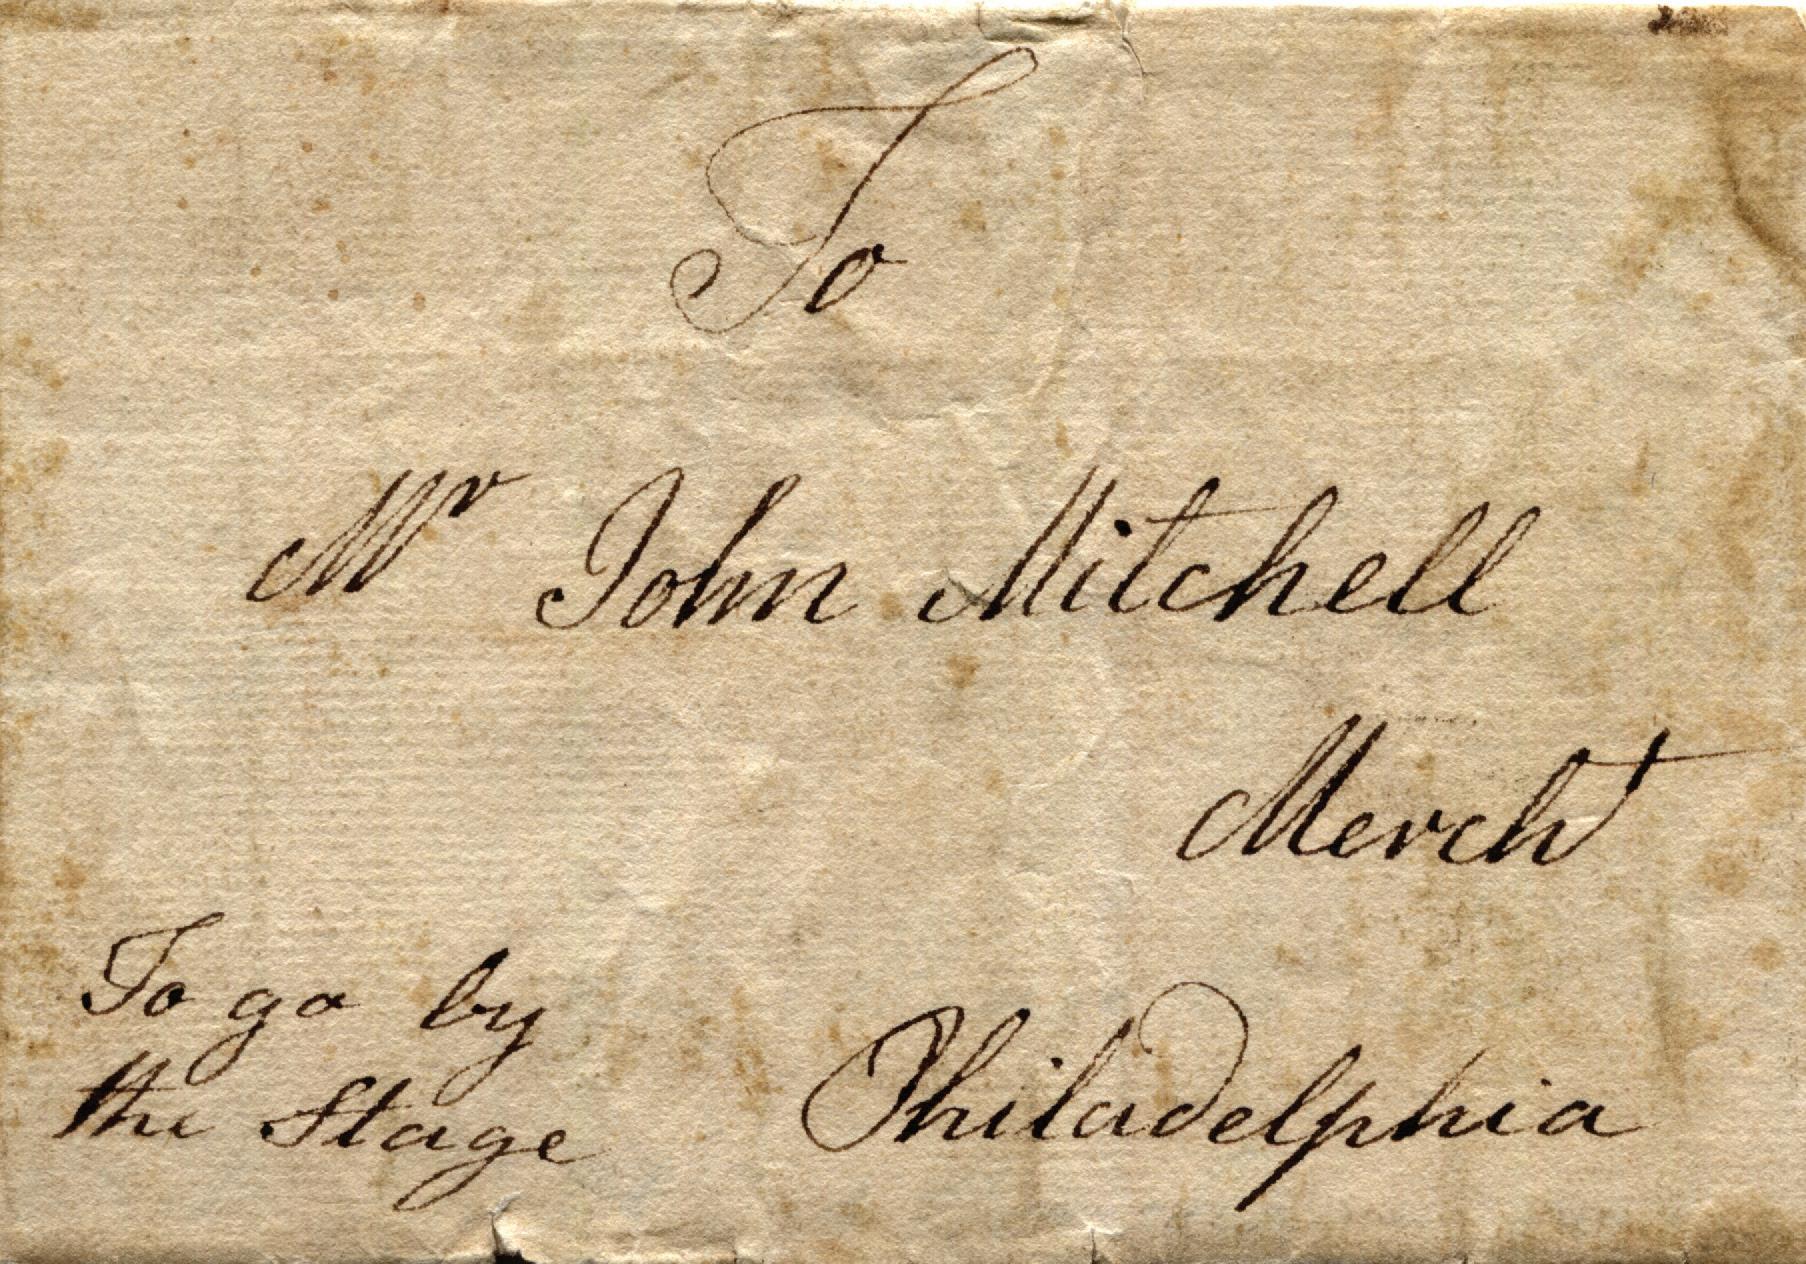 To
Mr John Mitchell
Mercht
To go by
the Stage
Philadelphia